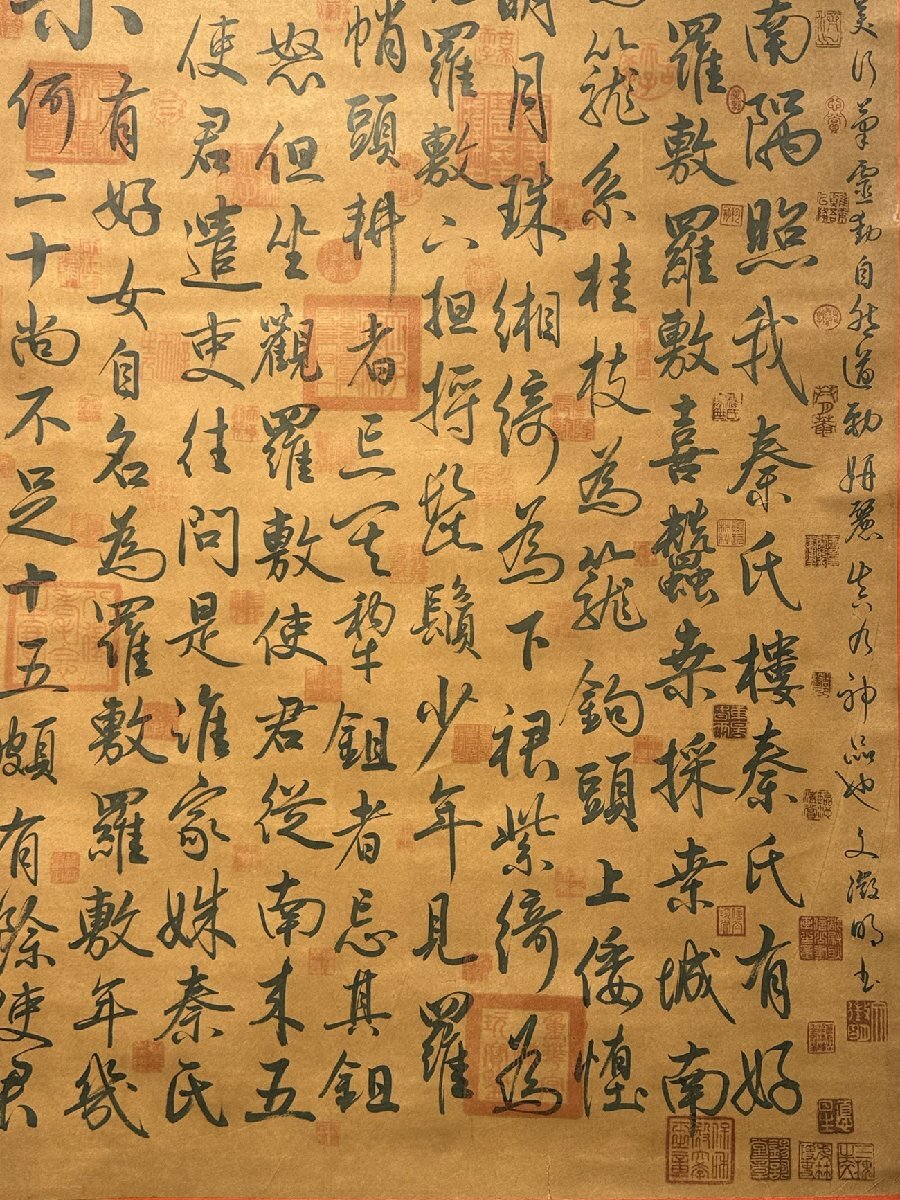 美行筆靈動自然遒勁妍麗真乃神品也文徵明書
南隅照我秦氏樓秦氏有好
羅敷羅敷喜蠶桑採桑城南
籠系桂枝為籠鉤頭上倭墮
明月珠緗綺為下裙紫綺為
羅敷下担捋髭鬚少年見羅
帩頭耕者忘其犁鉏者忘其鉏
怒但坐觀羅敷使君從南来五
使君遣吏往問是誰家姝秦氏
有好女自名為羅敷羅敷年幾
何二十尚不足十五頗有餘使君